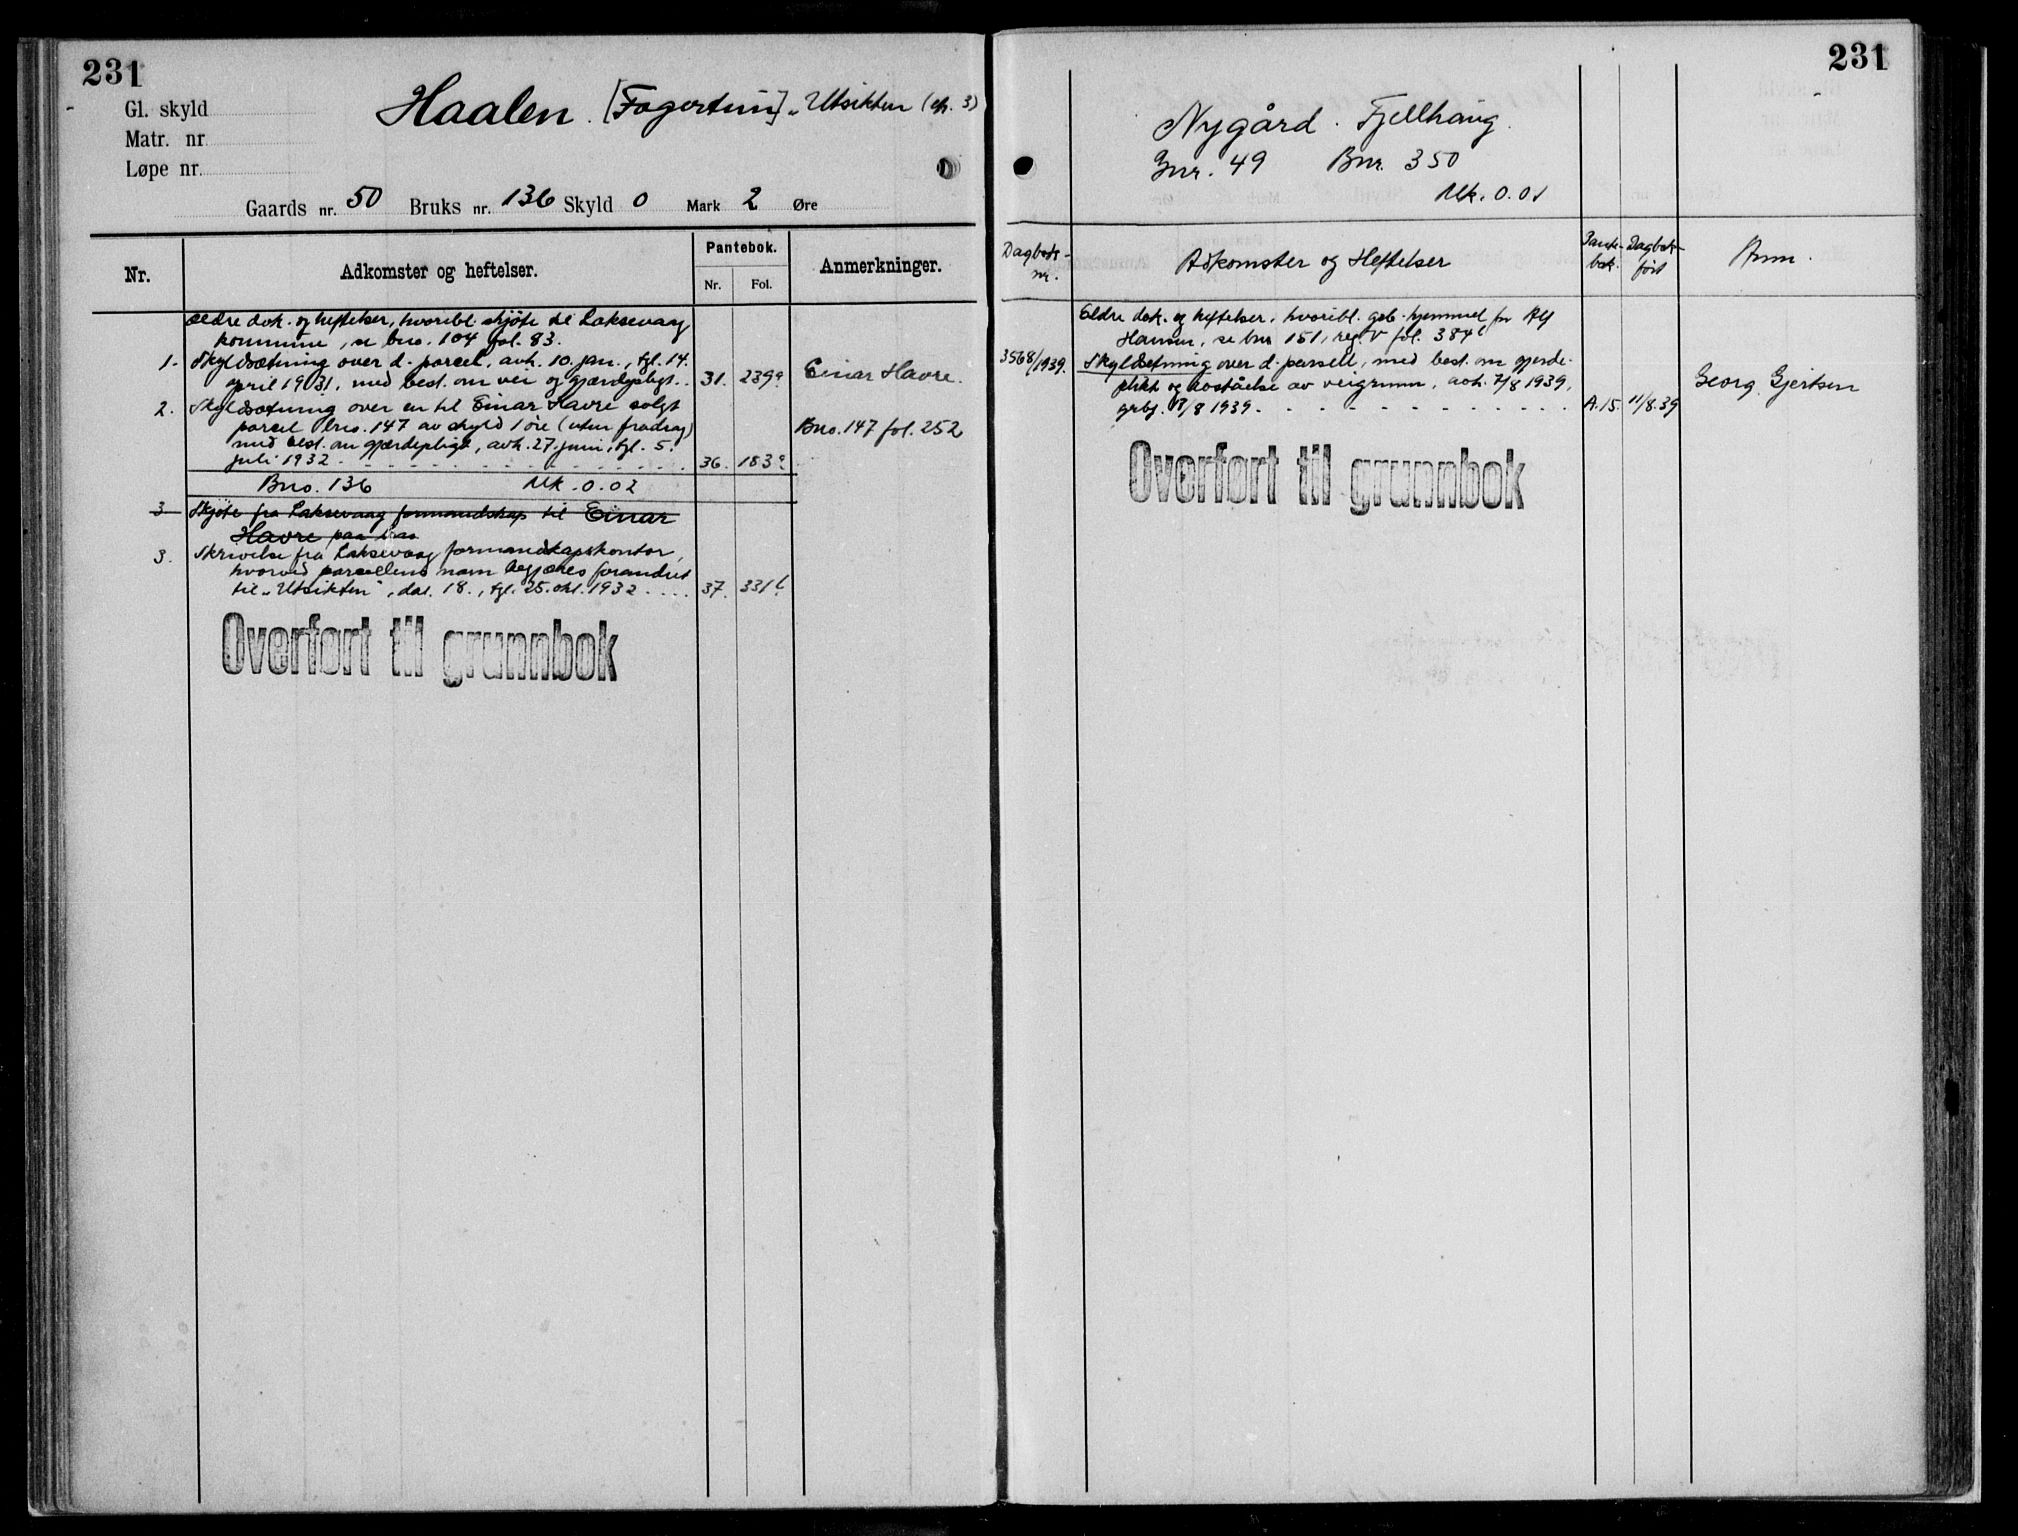 231
Gl. skyld
Matr. nr.
Løpe nr.
Haalen. [Fagertun] „Utsikten (cfr. 3)
Gaards nr. 50 Bruks nr. 136 Skyld 0 Mark 2 Øre
Nr. Adkomster og heftelser. Pantebok. Nr. Fol. Anmerkninger.
ældre dok. og heftelser, hvoribl. skjøte til Laksevaag
kommune, se bno. 104 fol. 83.
1. Skyldsætning over d. parcel, avh. 10. jan., tgl. 14.
april 1931, med best. om vei og gjærdepligt. . 31. 239a Einar Havre.
2. Skyldsætning over en til Einar Havre solgt
parcel bno. 147 av skyld 1 øre (uten fradrag) Bno. 147 fol. 252
med best. om gjærdepligt, avh. 27. juni, tgl. 5.
juli 1932 . . . . . . . . . . . . . . . . 36. 183a
Bno. 136 Mk. 0.02
3 Skjøte fra Laksevaag formandskap til Einar
Havre paa
3. Skrivelse fra Laksevaag formandskapskontor,
hvorved parcellens navn begjæres forandret
til „Utsikten", dat. 18., tgl. 25. okt. 1932 . . . . 37. 331b
Overført til grunnbok
231
Nygård. Fjellhaug.
Gnr. 49 Bnr. 350
Mk. 0.01
Dagbok-
nr. Adkomster og Heftelser Pante-
bok. Dagbok-
ført Anm.
Eldre dok. og heftelser, hvoribl. hjemmel for Alf
Hansen, se bnr 151, reg. V fol. 384b
3568/1939. Skyldsetning over d. parsell, med best. om gjerde-
plikt og avståelse av veigrunn, avh. 7/8 1939, Georg Gjertsen
grbj. 8/8 1939. . . . . . . . . . . . . A.15. 11/8.39
Overført til grunnbok